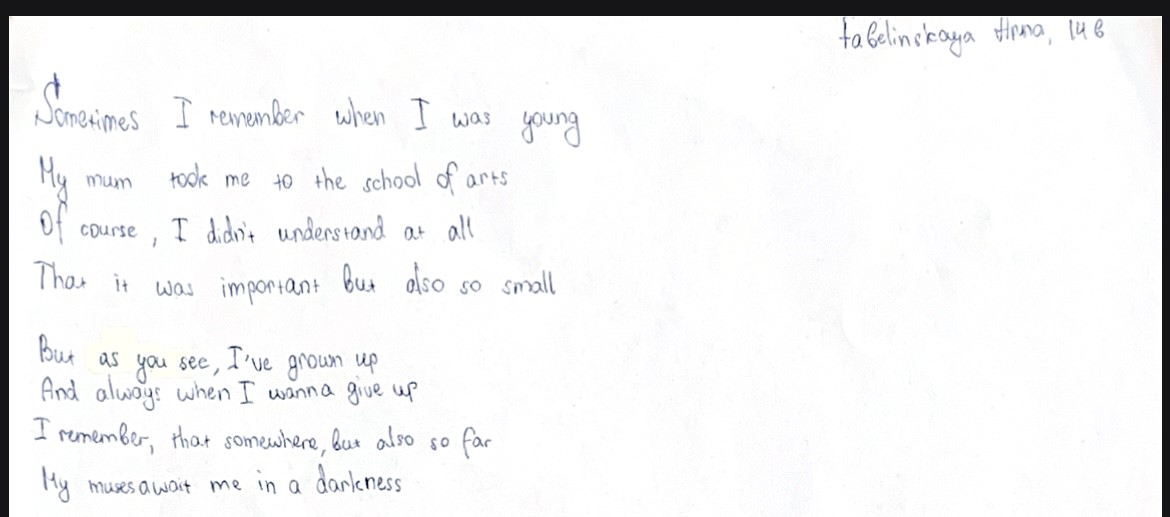 Tabelinskaya Anna, 14 B
Sometimes I remember when I was young
My mum took me to the school of arts
Of course, I didn't understand at all
That it was important but also so small
But as you see, I've grown up
And always when I wanna give up
I remember, that somewhere, but also so far
My muses await me in a darkness